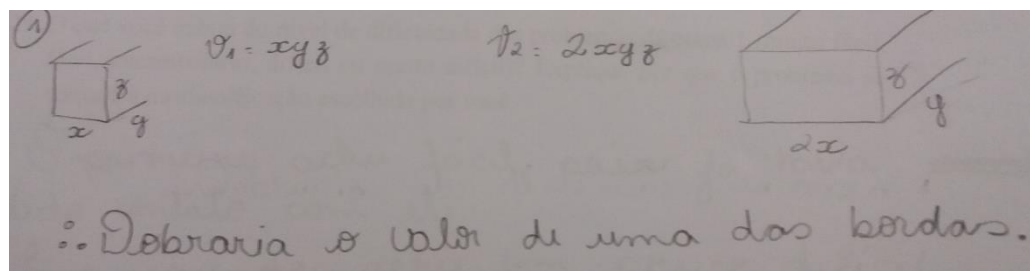 1
V₁ = xyz
V₂ = 2xyz
z
x
y
z
y
2x
∴ Dobraria o valor de uma das bordas.